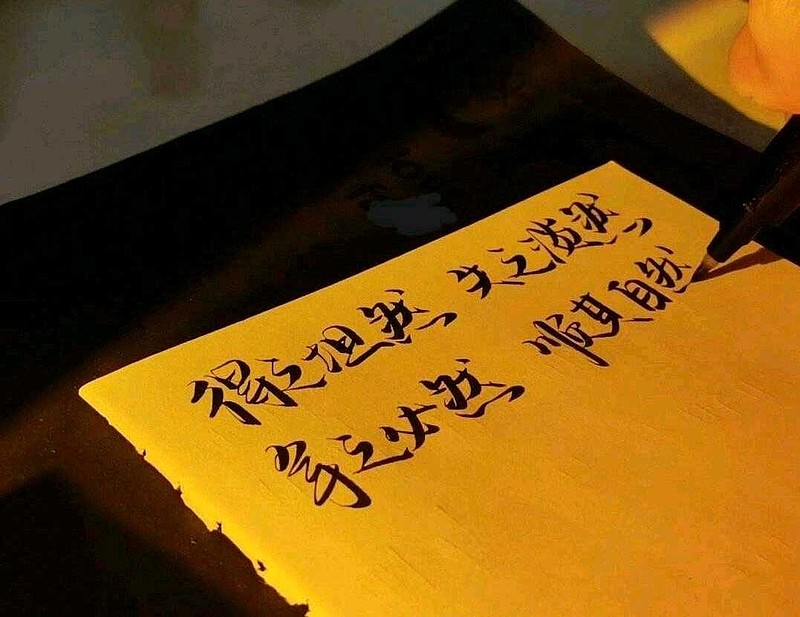 得之坦然 失之淡然
争之必然 顺其自然